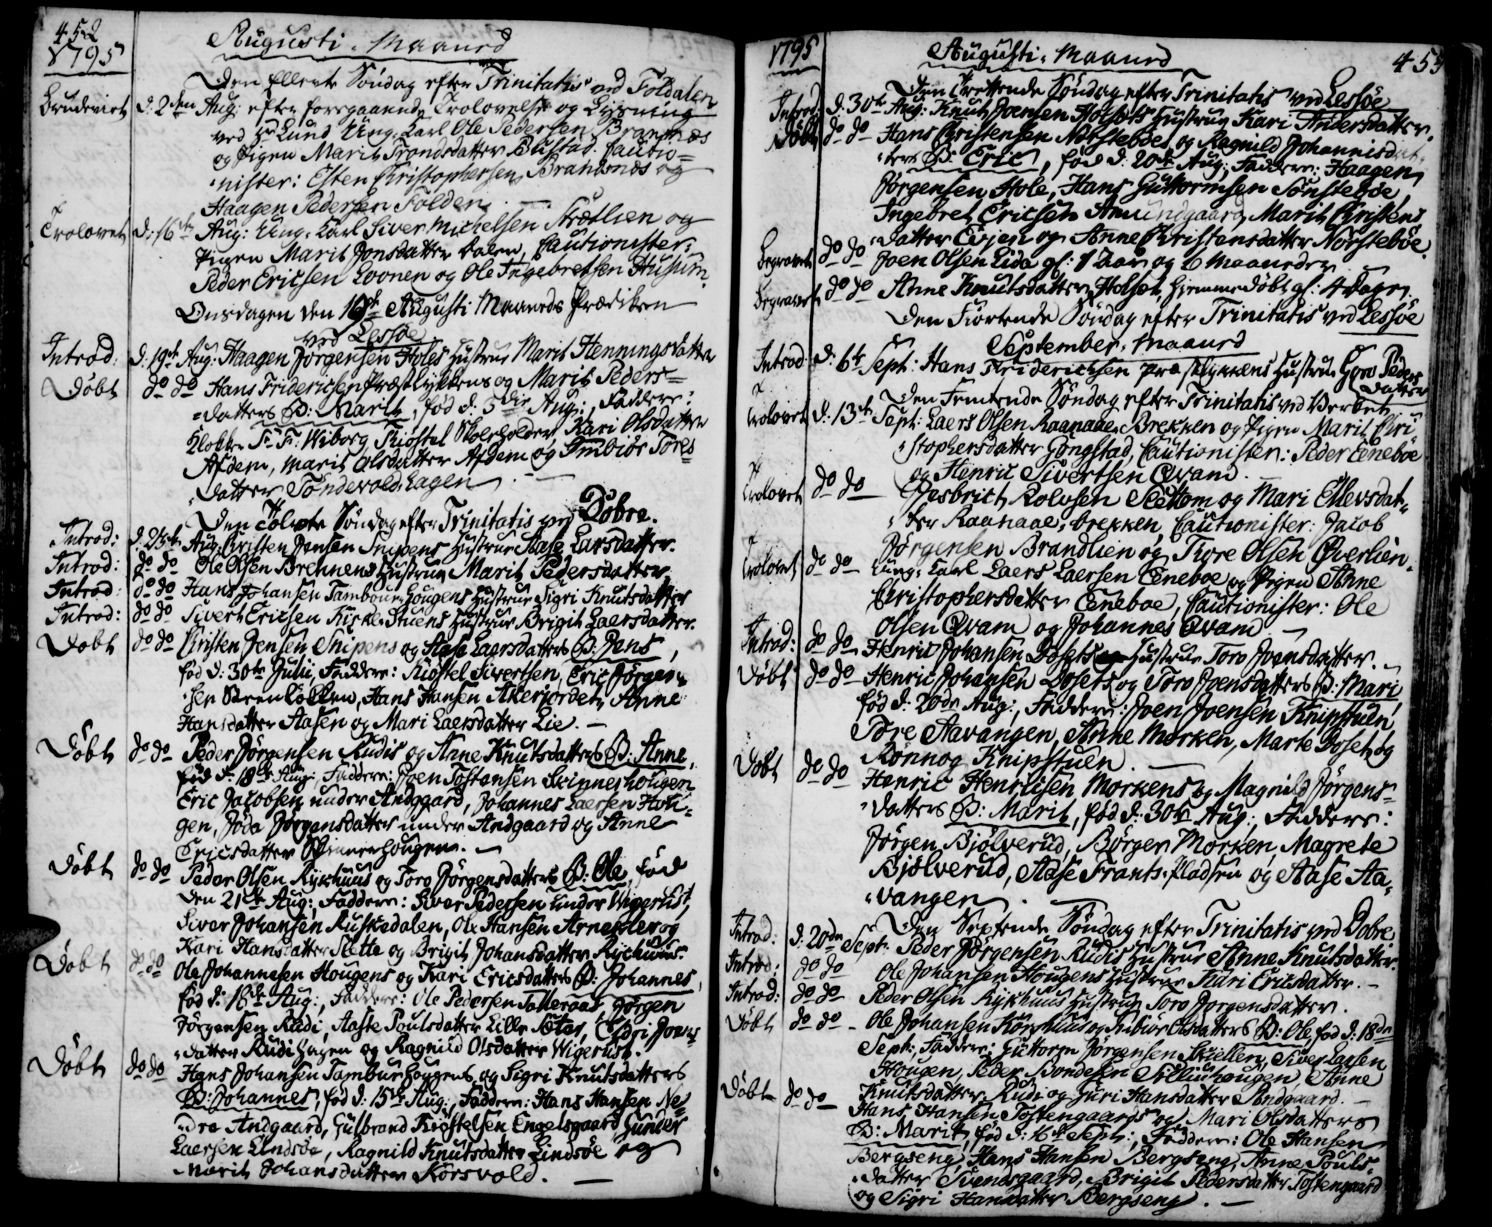 452
1795
Augusti. Maaned
Den Ellevte Söndag efter Trinitatis ved Foldalen
Brudeviet d: 2den Aug: efter foregaaende Trolovelse og Lysning
ved Hr Lund Ung: Karl Ole Pedersen Brandnæs
og Pigen Marit Trondsdatter Blistad. Cautio=
nister: Esten Christophersen Brandnæs og
Haagen Pedersen Folden.
Trolovet d: 16de Aug: Ung: Karl Siver Michelsen Stætlien og
Pigen Marit Jonsdatter Dalen, Cautionister:
Peder Ericsen Loonen og Ole Ingebretsen Husum.
Onsdagen den 19de Augusti Maaneds Prædiken
ved Lessøe
Introd: d: 19de Aug: Haagen Jörgensen Holes Hustrue Marit Henningsdatter
Döbt do do Hans Friderichsen Præstlykkens og Marit Peders=
datters B: Marit, föd d: 5te Aug:, Faddere:
Klokker F: F: Wiborg Kiöstel Skoleholder, Kari Olsdatter
Afdem, Marit Olsdatter Afdem og Imbiör Tores=
datter Töndevold Hagen.
Den Tolvte Söndag efter Trinitatis ved Dobre.
Introd: d: 23de Aug: Christen Jensen Snipens Hustrue Aase Larsdatter.
Introd: do do Ole Olsen Brehnens Hustrue Marit Pedersdatter
Introd: do do Hans Johansen Tambour Hougens Hustrue Sigri Knutsdatter
Introd: do do Sivert Ericsen Kirke-Stuens Hustrue Brigit Laersdatter.
Döbt do do Christen Jensen Snipens og Aase Laersdatters B: Jens,
föd d: 30te Julii, Faddere: Kiöstel Sivertsen, Eric Jörgen=
sen Steenkollen, Hans Hansen Akerjordet, Anne
Hansdatter Aasen og Mari Laersdatter Lie.
Döbt do do Peder Jörgensen Rudis og Anne Knutsdatters B: Anne,
föd d: 18de Aug: Faddere: Joen Tostansen Skinnerhougen
Eric Jacobsen under Andgaard, Johannes Laersen Hou=
gen, Jöda Jörgensdatter under Andgaard og Anne
Ericsdatter Skinnerhougen.
Döbt do do Peder Olsen Rykhuus og Toro Jörgensdatters B: Ole, föd
den 21de Aug: Faddere: Siver Pedersen under Wigerust,
Siver Johansen Ruskedalen, Ole Hansen Arneklev og
Kari Hansdatter Slette og Brigit Johansdatter Rychuus.
Döbt do do Ole Johannesen Hougens og Kari Ericsdatters B: Johannes,
föd d: 16de Aug:, Faddere: Ole Pedersen Talleraas, Jörgen
Jörgensen Rudi, Aaste Poulsdatter Lille Sætar, Jöri Joens
datter Rudi Hagen og Ragnild Olsdatter Wigerust.
Döbt do do Hans Johansen Tambur Hougens og Sigri Knutsdatters
B: Johannes, föd d: 15de Aug:, Faddere: Hans Hansen Ne=
dre Andgaard, Gulbrand Kiöstelsen Engelsgaard Gunder
Laersen Lindsöe, Ragnild Knutsdatter Lindsöe og
Marit Johansdatter Korsvold.
1795
Augusti. Maaned
453
Den Trettende Söndag efter Trinitatis ved Lessöe
Introd: d: 30te Aug: Knut Joensen Holsets Hustrue Kari Andersdatter.
Döbt do do Hans Christensen Nörsteböes og Ragnild Johannisdat
ters B: Eric, föd d: 20de Aug:, Faddere: Haagen
Jörgensen Hole, Hans Guttormsen Sönsteböe,
Ingebret Ericsen Amundgaard, Marit Christens
datter Evjen og Anne Christensdatter Nörsteböe.
Begravet do do Joen Olsen Lida gl: 1 Aar og 6 Maaneder
Begravet do do Anne Knutsdatter Holset, Hjemmedöbt gl: 4 Dage.
Den Fiortende Söndag efter Trinitatis ved Lessöe
September. Maaned
Introd: d: 6te Sept: Hans Friderichsen Præstlykkens Hustrue Goro Peders
datter
Den Femtende Söndag efter Trinitatis ved Verket,
Trolovet d: 13de Sept: Laers Olsen Raanaae-Brekken og Pigen Marit Chri
stophersdatter Gongstad, Cautionister: Peder Eneböe
og Henric Sivertsen Qvam.
Trolovet do do Gjesbrict Rolvsen Slettom og Mari Ellevsdat=
ter Raanaae-brekken, Cautionister: Jacob
Jörgensen Brandlien og Tore Olsen Överlien.
Trolovet do do Ung: Karl Laers Laersen Eneboe og Pigen Anne
Christophersdatter Eneboe, Cautionister: Ole
Olsen Qvam og Johannes Qvam
Introd: do do Henric Johansen Dosets Hustrue Toro Joensdatter.
Döbt do do Henric Johansen Dosets og Toro Joensdatters B: Mari
föd d: 20de Aug:, Faddere: Joen Joensen Knipstuen,
Tore Aavangen, Anne Morken, Marte Doset og
Rönnog Knipstuen.
Döbt do do Henric Henricsen Morkens og Magnild Jörgens=
datters B: Marit, föd d: 30te Aug:, Faddere:
Jörgen Bjölverud, Börger Morken Magrete
Bjölverud, Aase Frants-pladsen og Aase Aa=
vangen.
Den Sextende Söndag efter Trinitatis ved Dobre
Introd: d: 20de Sept: Peder Jörgensen Rudis Hustrue Anne Knutsdatter.
Introd: do do Ole Johansen Hougens Hustrue Kari Ericsdatter.
Introd: do do Peder Olsen Rykhuus Hustrue Toro Jorgensdatter.
Döbt do do Ole Johansen Korshus og Imbiör Olsdatters B: Ole, föd d: 18de
Sept:, Faddere: Guttorm Jörgensen Skiellen, Siver Larsen
Hougen, Peder Bondesen Sillihougen, Anne
Knutsdatter Rudi og Guri Hansdatter Andgaard.
Döbt do do Hans Hansen Tostengaards og Mari Olsdatters
B: Marit, föd d: 16de Sept:, Faddere: Ole Hansen
Bergseng, Hans Hansen Bergseng, Anne Pouls=
datter Svensgaard, Brigit Pedersdatter Tostengaard
og Sigri Hansdatter Bergseng.